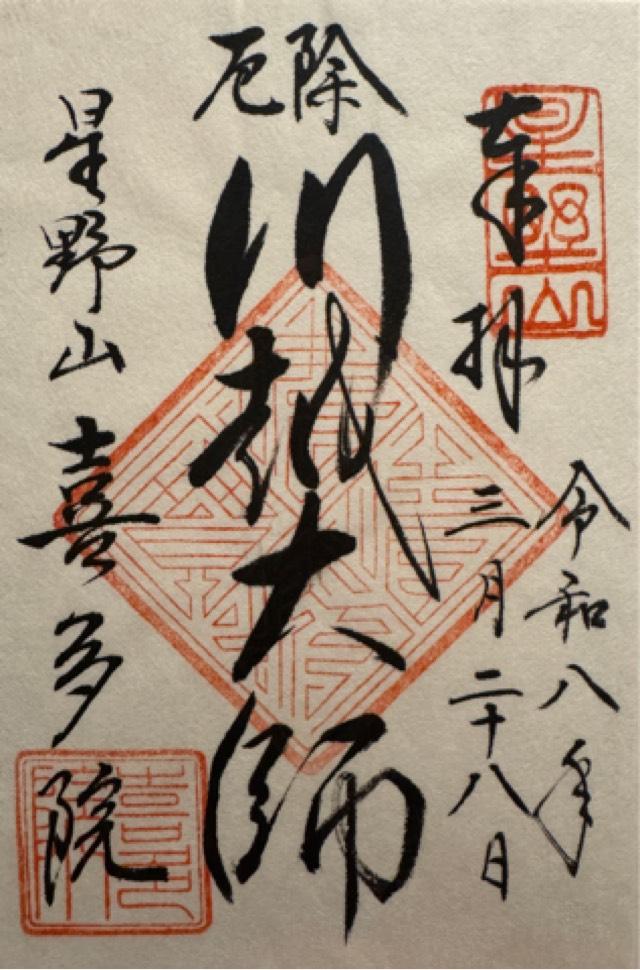 奉拝
令和八年
三月二十八日
厄除
川越大師
星野山 喜多院
星野山
喜多院